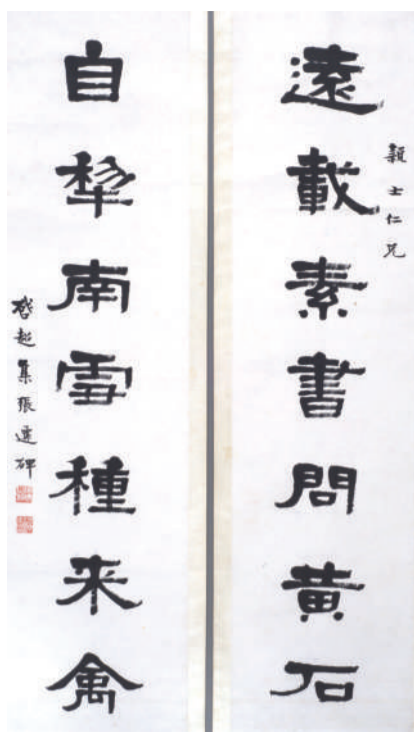 遠載素書問黃石
穎士仁兄
自犂南雪種来禽
啓超集張遷碑